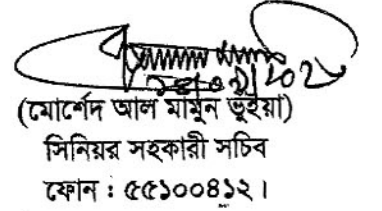 (মোর্শেদ আল মামুন ভুইয়া)
সিনিয়র সহকারী সচিব
ফোন : ৫৫১০০৪১২।